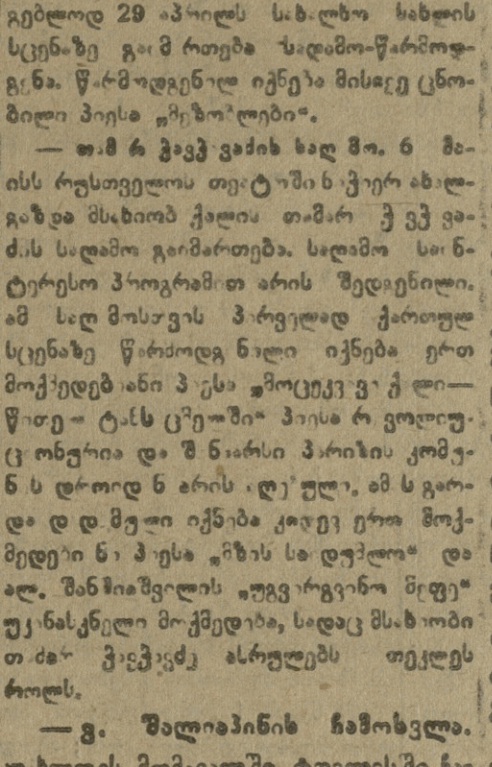 გებლოდ 29 აპრილს სახალხო სახლის
სცენაზე გაიმართება საღამო-წარმოდ-
გენა. წარმოდგენილ იქნება მისივე ცნო-
ბილი პიესა „მეზობლები“.
— თამარ ჭავჭავაძის საღამო. 6 მა-
ისს რუსთველის თეატრში ნიჭიერ ახალ-
გაზდა მსახიობ ქალის თამარ ჭავჭავა-
ძის საღამო გაიმართება. საღამო საინ-
ტერესო პროგრამით არის შედგენილი.
ამ საღამოსთვის პირველად ქართულ
სცენაზე წარმოდგენილი იქნება ერთ
მოქმედებიანი პიესა „მოცეკვავე ქალი—
წითელ ტანსაცმელში“ პიესა რევოლიუ-
ციონურია და შინაარსი პარიზის კომუ-
ნის დროიდან არის აღებული. ამის გარ-
და დადგმული იქნება კიდევ ერთ მოქ-
მედებიანი პიესა „მზის საიდუმლო“ და
ალ. შანშიაშვილის „უგვირგვინო მეფე“
უკანასკნელი მოქმედება, სადაც მსახიობი
თამარ ჭავჭავაძე ასრულებს თეკლეს
როლს.
— გ. შალიაპინის ჩამოსვლა.